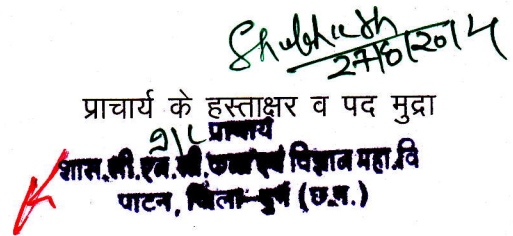 Shubhash
27/8/2014
प्राचार्य के हस्ताक्षर व पद मुद्रा
प्राचार्य
शास.सी.एल.सी.कला एवं विज्ञान महा.वि
पाटन, जिला-दुर्ग (छ.ग.)